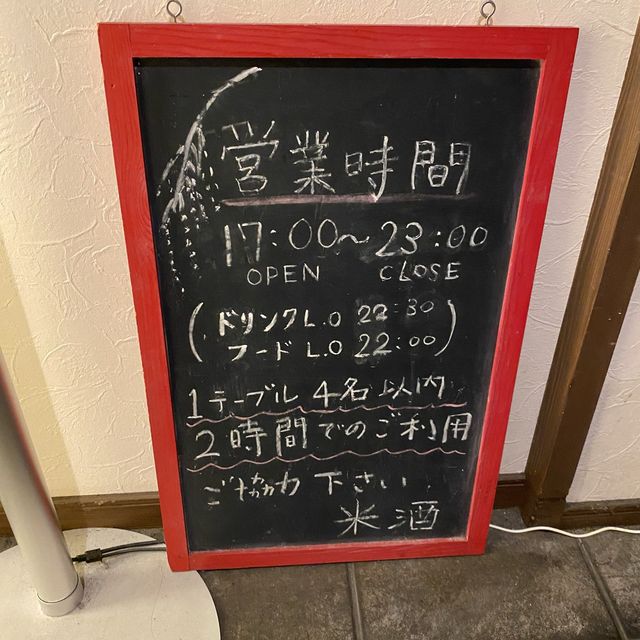 営業時間
17:00～23:00
OPEN CLOSE
(ドリンクL.O 22:30
フードL.O 22:00)
1テーブル 4名以内
2時間でのご利用
ご協力下さい
米酒